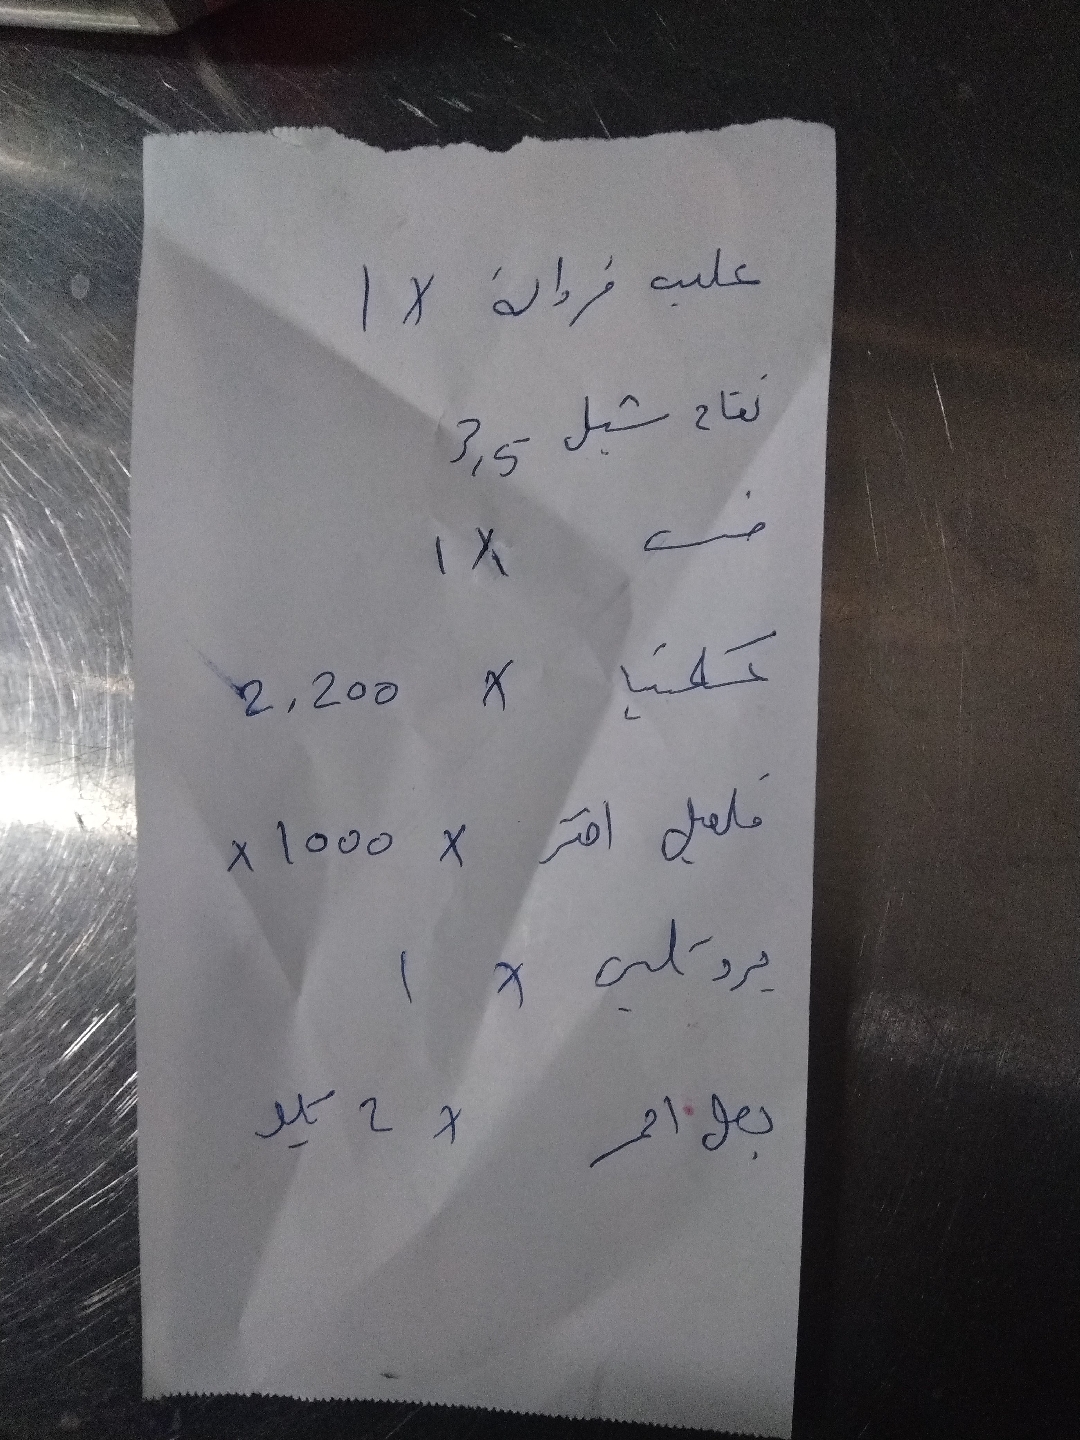 علب فراولة X 1
تفاح شيل 3,5
خس X 1
X 2,200
فلفل اخضر X 1000 x
بروكلي X 1
بصل احمر X 2 كيلو